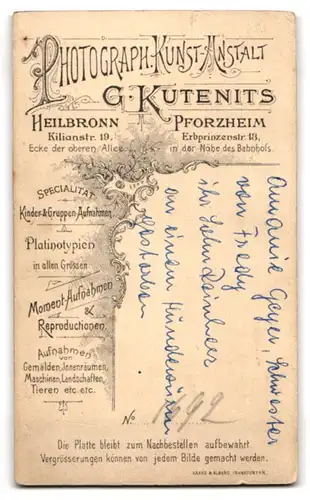 PHOTOGRAPH-KUNST-ANSTALT
G. KUTENITS
HEILBRONN PFORZHEIM
Kilianstr. 19, Erbprinzenstr. 18,
Ecke der oberen Allee in der Nähe des Bahnhofs
SPECIALITÄT
Kinder & Gruppen-Aufnahmen
Platinotypien
in allen Grössen
Moment-Aufnahmen
&
Reproductionen
Aufnahmen
von
Gemälden, Jnnenräumen,
Maschinen, Landschaften,
Tieren etc etc.
Amanie Geyer, Schwester
von Fredy
ihr Sohn
an einem
gestorben
No 1692
Die Platte bleibt zum Nachbestellen aufbewahrt.
Vergrösserungen können von jedem Bilde gemacht werden.